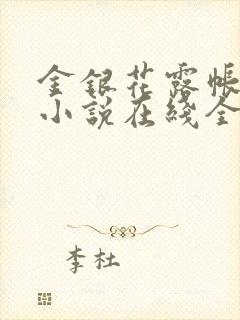 金银花露帐
小说在线全
李杜